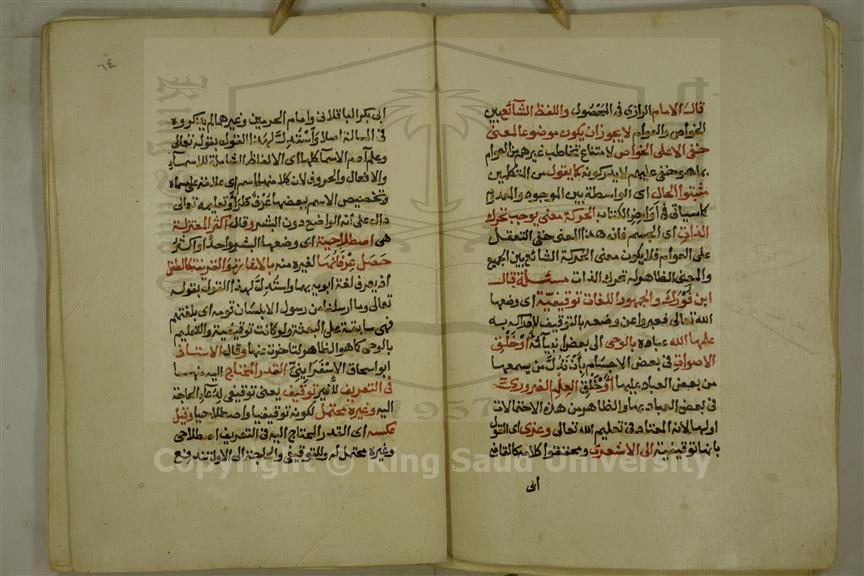 قال الامام الرازي في المحصول واللفظ الشائع بين
الخواص والعوام لا يجوز ان يكون موضوعا لمعنى
خفي الا على الخواص لامتناع تخاطب غيرهم من العوام
بما هو خفي عليهم لا يدركونه كما يقول من المتكلمين
مثبتوا الحال اى الواسطة بين الموجود والمعدوم
كما سياتي في اواخر الكتاب الحركة معنى يوجب تحرك
الذات اى الجسم فان هذا المعنى خفي التعقل
على العوام فلا يكون معنى الحركة الشائع بين الجميع
والمعنى الظاهر له تحرك الذات مسئلة قالت
ابن فورك والجمهور اللغات توقيفية اى وضعها
الله تعالى فعبروا عن وضعه بالتوقيف لادراكه به
علمها الله عباده بالوحي الى بعض انبيائه او خلق
الاصوات في بعض الاجسام بان تدل من يسمعها
من بعض العباد عليها او خلق العلم الضروري
في بعض العباد بها والظاهر من هذه الاحتمالات
اولها لانه المعتاد في تعليم الله تعالى وعزى اى القول
بانها توقيفية الى الاشعري ومحققوا كلامه كالقاضي
ابى
٦٤
ابى بكر الباقلاني وامام الحرمين وغيرهما لم يذكروه
في المسالة اصلا واستدل لهذا القول بقوله تعالى
وعلم آدم الاسما كلها اى الالفاظ الشاملة للاسماء
والافعال والحروف لان كلا منها اسم اى علامة على مسماه
وتخصيص الاسم ببعضها عرف طرا وتعليمه تعالى
دال على انه الواضع دون البشر وقال اكثر المعتزلة
هى اصطلاحية اى وضعها البشر واحدا او اكثر
حصل عرفانها لغيره منه بالاشارة والقرينة كالطفل
اذ يعرف لغة ابويه بهما واستدل لهذا القول بقوله
تعالى وما ارسلنا من رسول الا بلسان قومه اى بلغتهم
فهى سابقة على البعثة ولو كانت توقيفية والتعليم
بالوحي كما هو الظاهر لتاخرت عنها وقال الاستاذ
ابو اسحاق الاسفرايني القدر المحتاج اليه منها
في التعريف للغير توقيف يعنى توقيفي لدعاء الحاجة
اليه وغيره محتمل لكونه توقيفيا واصطلاحيا وقيل
عكسه اى القدر المحتاج اليه في التعريف اصطلاحي
وغيره محتمل له وللتوقيفي والحاجة الى الاول تندفع
Copyright © King Saud University
1957